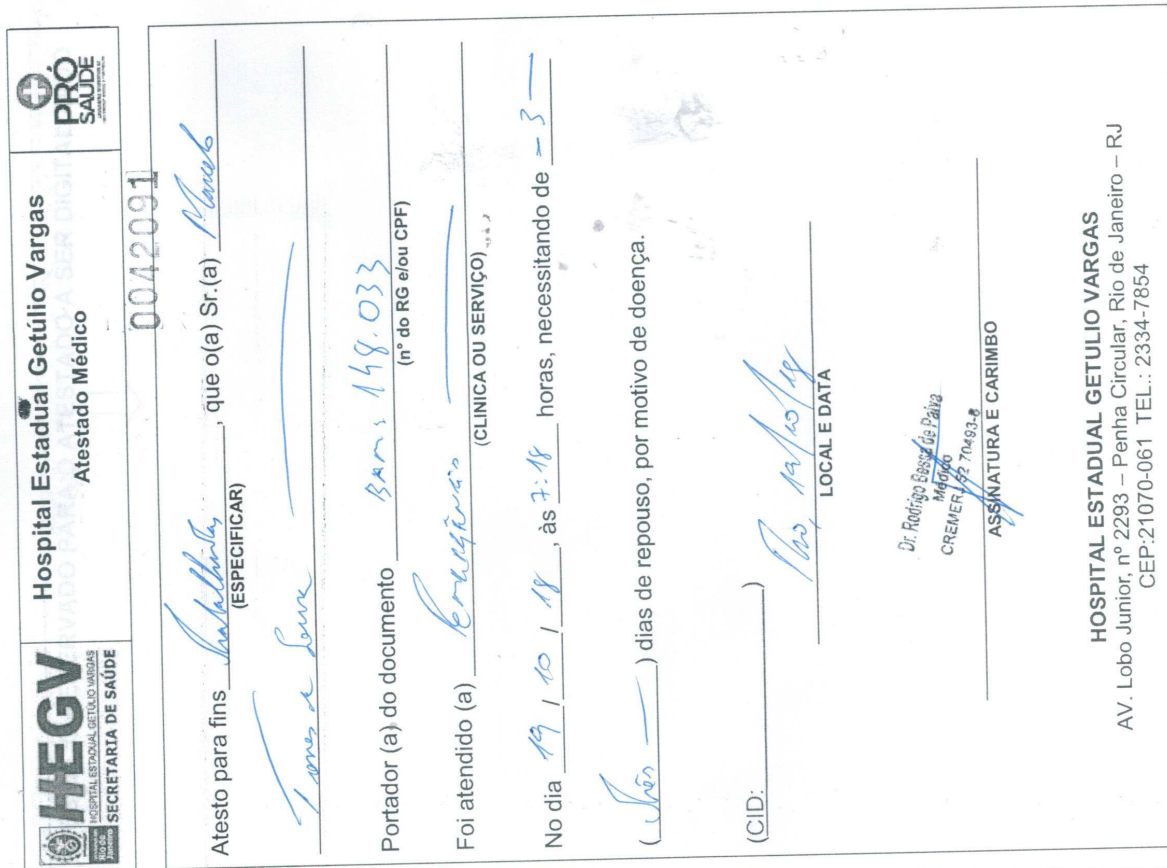 HEGV
HOSPITAL ESTADUAL GETÚLIO VARGAS
SECRETARIA DE SAÚDE
Hospital Estadual Getúlio Vargas
Atestado Médico
PRÓ
SAUDE
0042091
Atesto para fins Trabalhistas, que o(a) Sr.(a) Marcelo
(ESPECIFICAR)
Torres de
Portador (a) do documento 148.033
(n° do RG e/ou CPF)
Foi atendido (a) Emergência
(CLINICA OU SERVIÇO)
No dia 19 / 10 / 18, às 7:18 horas, necessitando de - 3 -
( três ) dias de repouso, por motivo de doença.
(CID: )
Rio, 19/10/18
LOCAL E DATA
Dr. Rodrigo Bessa de Paiva
Médico
CREMERJ 52 70493-8
ASSINATURA E CARIMBO
HOSPITAL ESTADUAL GETULIO VARGAS
AV. Lobo Junior, nº 2293 – Penha Circular, Rio de Janeiro – RJ
CEP:21070-061 TEL.: 2334-7854